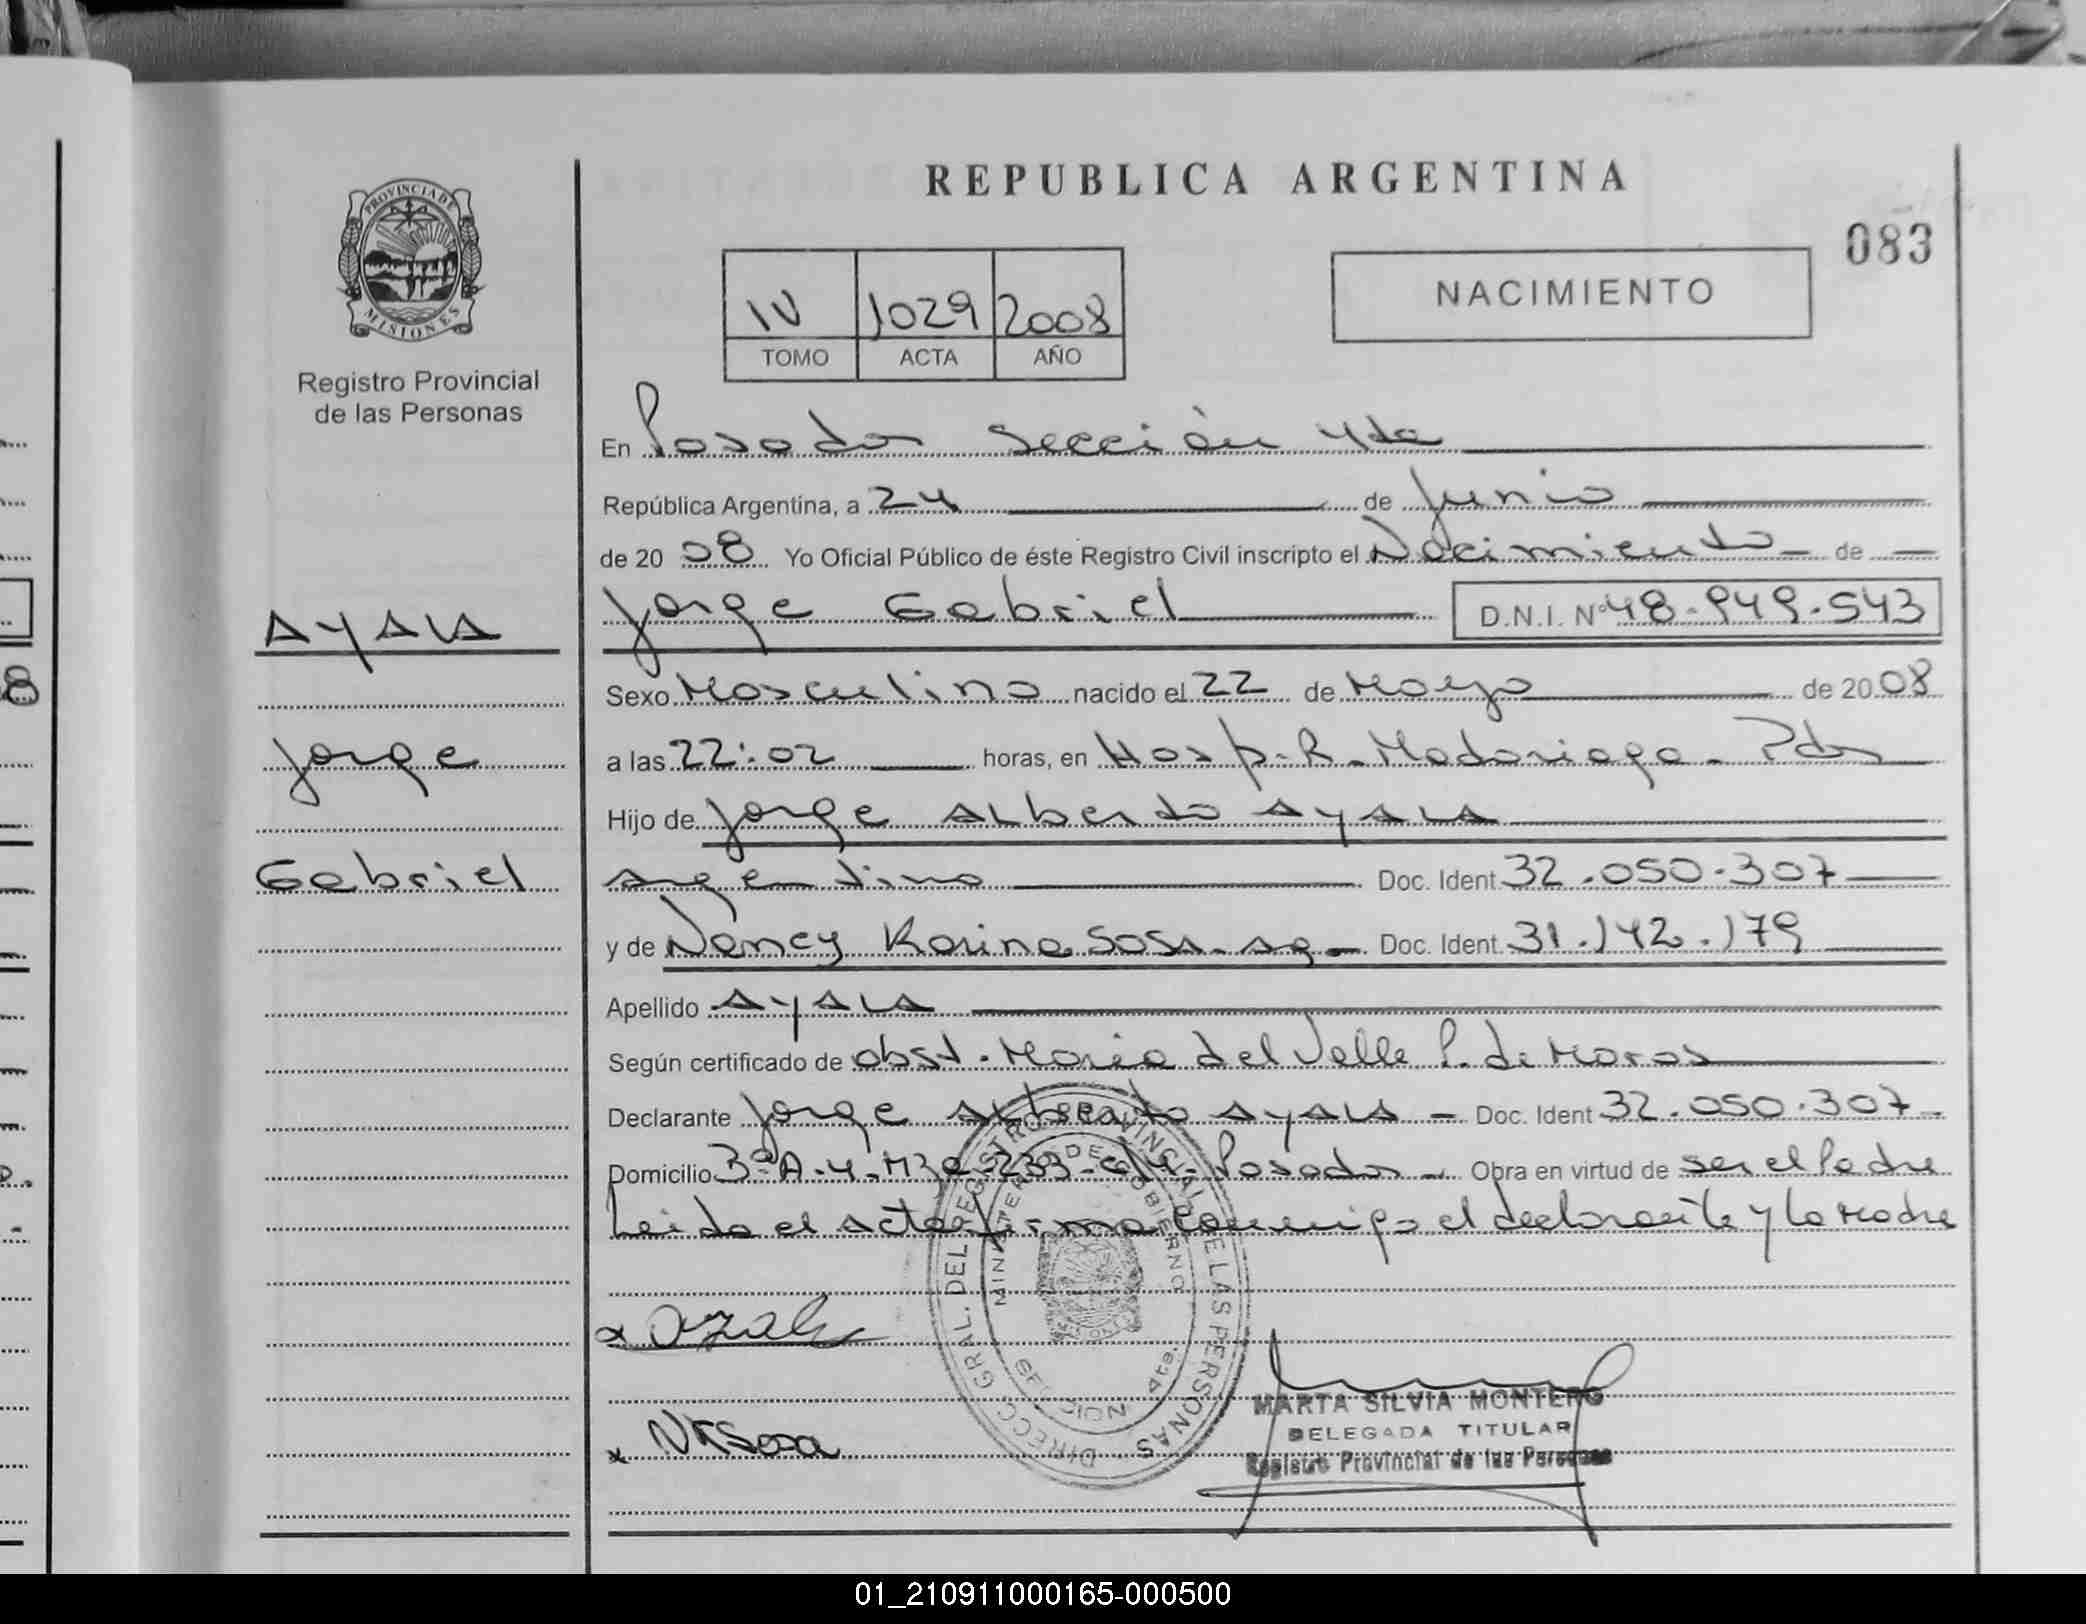 REPUBLICA ARGENTINA
083
PROVINCIA DE
MISIONES
Registro Provincial
de las Personas
IV 1029 2008
TOMO ACTA AÑO
NACIMIENTO
En Posadas Sección 4ta
República Argentina, a 24 de Junio
de 2008 Yo Oficial Público de éste Registro Civil inscripto el Nacimiento de
AYALA
Jorge Gabriel D.N.I. Nº 48.949.543
Sexo Masculino nacido el 22 de Mayo de 2008
Jorge
a las 22:02 horas, en Hosp. R. Madariaga - Pdas
Hijo de Jorge Alberto AYALA
Gabriel
Argentino Doc. Ident. 32.050.307
y de Nancy Karina SOSA - Ag - Doc. Ident. 31.142.179
Apellido AYALA
Según certificado de obst. Maria del Valle P. de Moras
Declarante Jorge Alberto AYALA - Doc. Ident 32.050.307 -
Domicilio 233 Posadas - Obra en virtud de ser el Padre
Leida el acta firma conmigo el declarante y la Madre
DIRECC. GRAL. DEL REGISTRO PROVINCIAL DE LAS PERSONAS
MINISTERIO DE GOBIERNO
SECCION 4ta.
x Ayala
x NKSosa
MARTA SILVIA MONTERO
DELEGADA TITULAR
Registro Provincial de las Personas
8
01_210911000165-000500